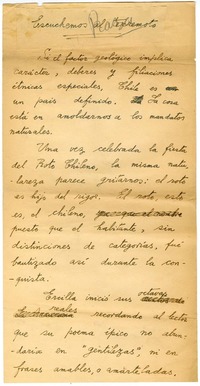 Escuchemos
Si el factor geológico implica
carácter, deberes y filiaciones
étnicas especiales, Chile es
un país definido. La cosa
está en amoldarnos a los mandatos
naturales.
Una vez celebrada la fiesta
del Roto Chileno, la misma natu-
raleza parece gritarnos: el roto
es hijo del rigor. El roto este
es, el chileno,
puesto que el habitante, sin
distinciones de categorías, fué
bautizado así durante la con-
quista.
Ercilla inició sus octavas
reales recordando al lector
que su poema épico no abun-
daría en "gentilezas", ni en
frases amables, o amarteladas.